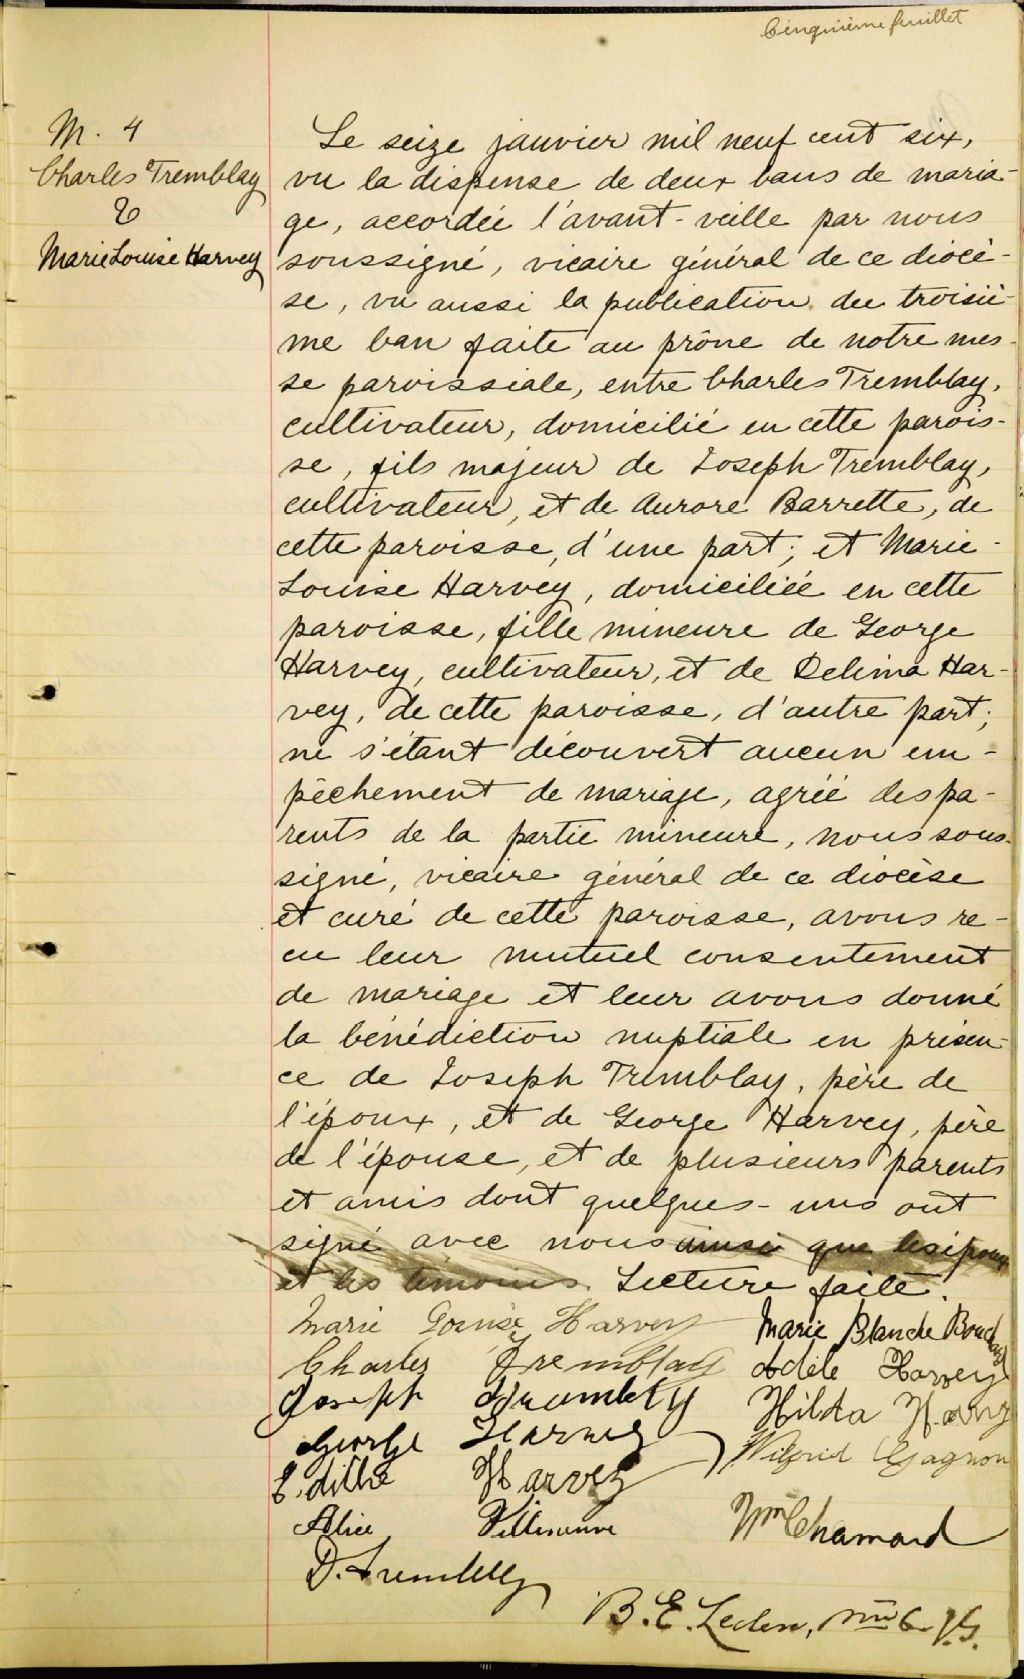 Cinquième feuillet
M. 4
Charles Tremblay
&
Marie Louise Harvey
Le seize janvier mil neuf cent six,
vu la dispense de deux bans de maria-
ge, accordée l'avant-veille par nous
soussigné, vicaire général de ce diocè-
se, vu aussi la publication du troisiè-
me ban faite au prône de notre mes-
se paroissiale, entre Charles Tremblay,
cultivateur, domicilié en cette parois-
se, fils majeur de Joseph Tremblay,
cultivateur, et de Aurore Barrette, de
cette paroisse, d'une part; et Marie-
Louise Harvey, domiciliée en cette
paroisse, fille mineure de George
Harvey, cultivateur, et de Delima Har-
vey, de cette paroisse, d'autre part;
ne s'étant découvert aucun em-
pêchement de mariage, agréé des pa-
rents de la partie mineure, nous sous-
signé, vicaire général de ce diocèse
et curé de cette paroisse, avons re-
cu leur mutuel consentement
de mariage et leur avons donné
la bénédiction nuptiale en présen-
ce de Joseph Tremblay, père de
l'époux, et de George Harvey, père
de l'épouse, et de plusieurs parents
et amis dont quelques-uns ont
signé avec nous ainsi que les époux
et les témoins. Lecture faite.
Marie Louise Harvey Marie Blanche
Charles Tremblay Adèle Harvey
Joseph Trembley Hilda Harvey
George Harvey Wilfrid Gagnon
Edithe Harvey
Alice Villeneuve Wm Chamard
D. Trembley
B. E. Leclerc,